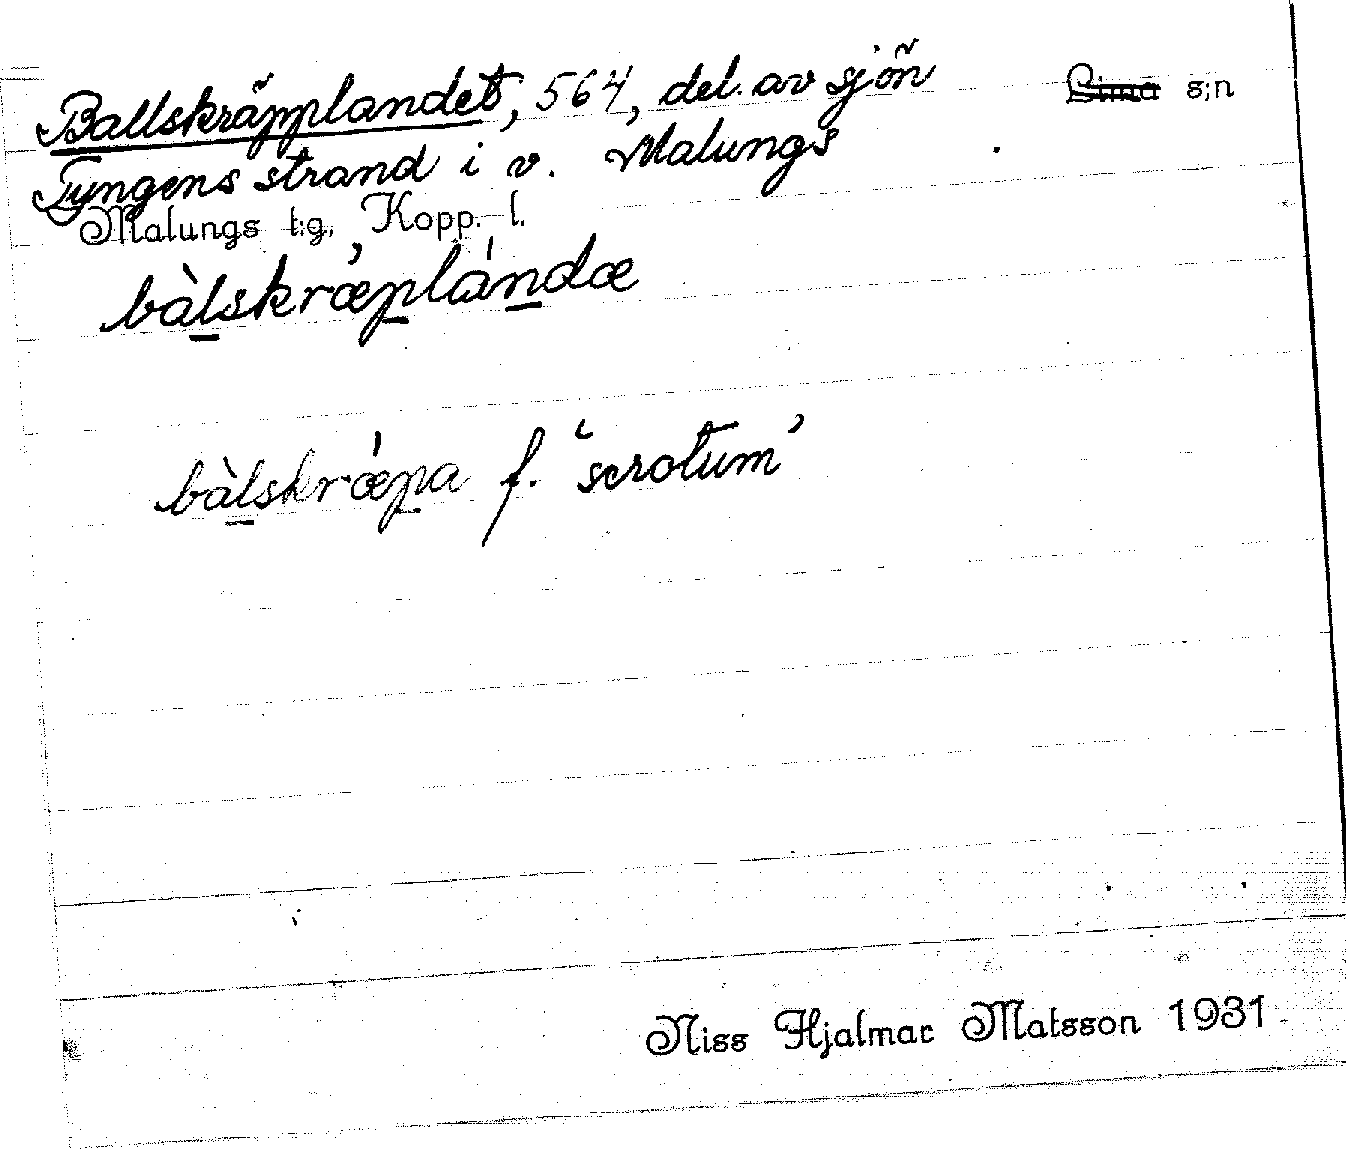 Ballskräpplandet, 564, del av sjön Lima s;n
Tyngens strand i v. Malungs
Malungs t:g, Kopp. l.
bàlskræplándæ
bàlskræpa f. 'scrotum'
Niss Hjalmar Matsson 1931